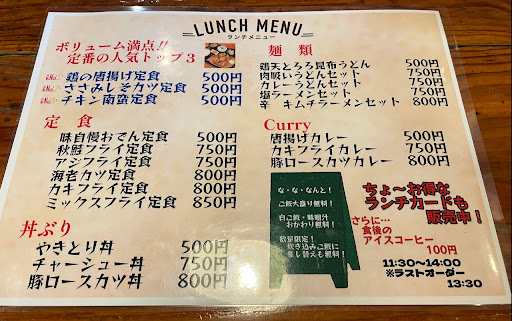 LUNCH MENU
ランチメニュー
ボリューム満点!!
定番の人気トップ3
鶏の唐揚げ定食 500円
ささみしそカツ定食 500円
チキン南蛮定食 500円
定 食
味自慢おでん定食 500円
秋鮭フライ定食 750円
アジフライ定食 750円
海老カツ定食 800円
カキフライ定食 800円
ミックスフライ定食 850円
丼ぶり
やきとり丼 500円
チャーシュー丼 750円
豚ロースカツ丼 800円
麺 類
鶏天とろろ昆布うどん 500円
肉吸いうどんセット 750円
カレーうどんセット 750円
塩ラーメンセット 750円
辛 キムチラーメンセット 800円
Curry
唐揚げカレー 500円
カキフライカレー 750円
豚ロースカツカレー 800円
な・な・なんと!
ご飯大盛り無料!
白ご飯・味噌汁
おかわり無料!
数量限定!
炊き込みご飯に
差し替えも無料!
ちょ〜お得な
ランチカードも
販売中!
さらに…
食後の
アイスコーヒー
100円
11:30〜14:00
※ラストオーダー
13:30